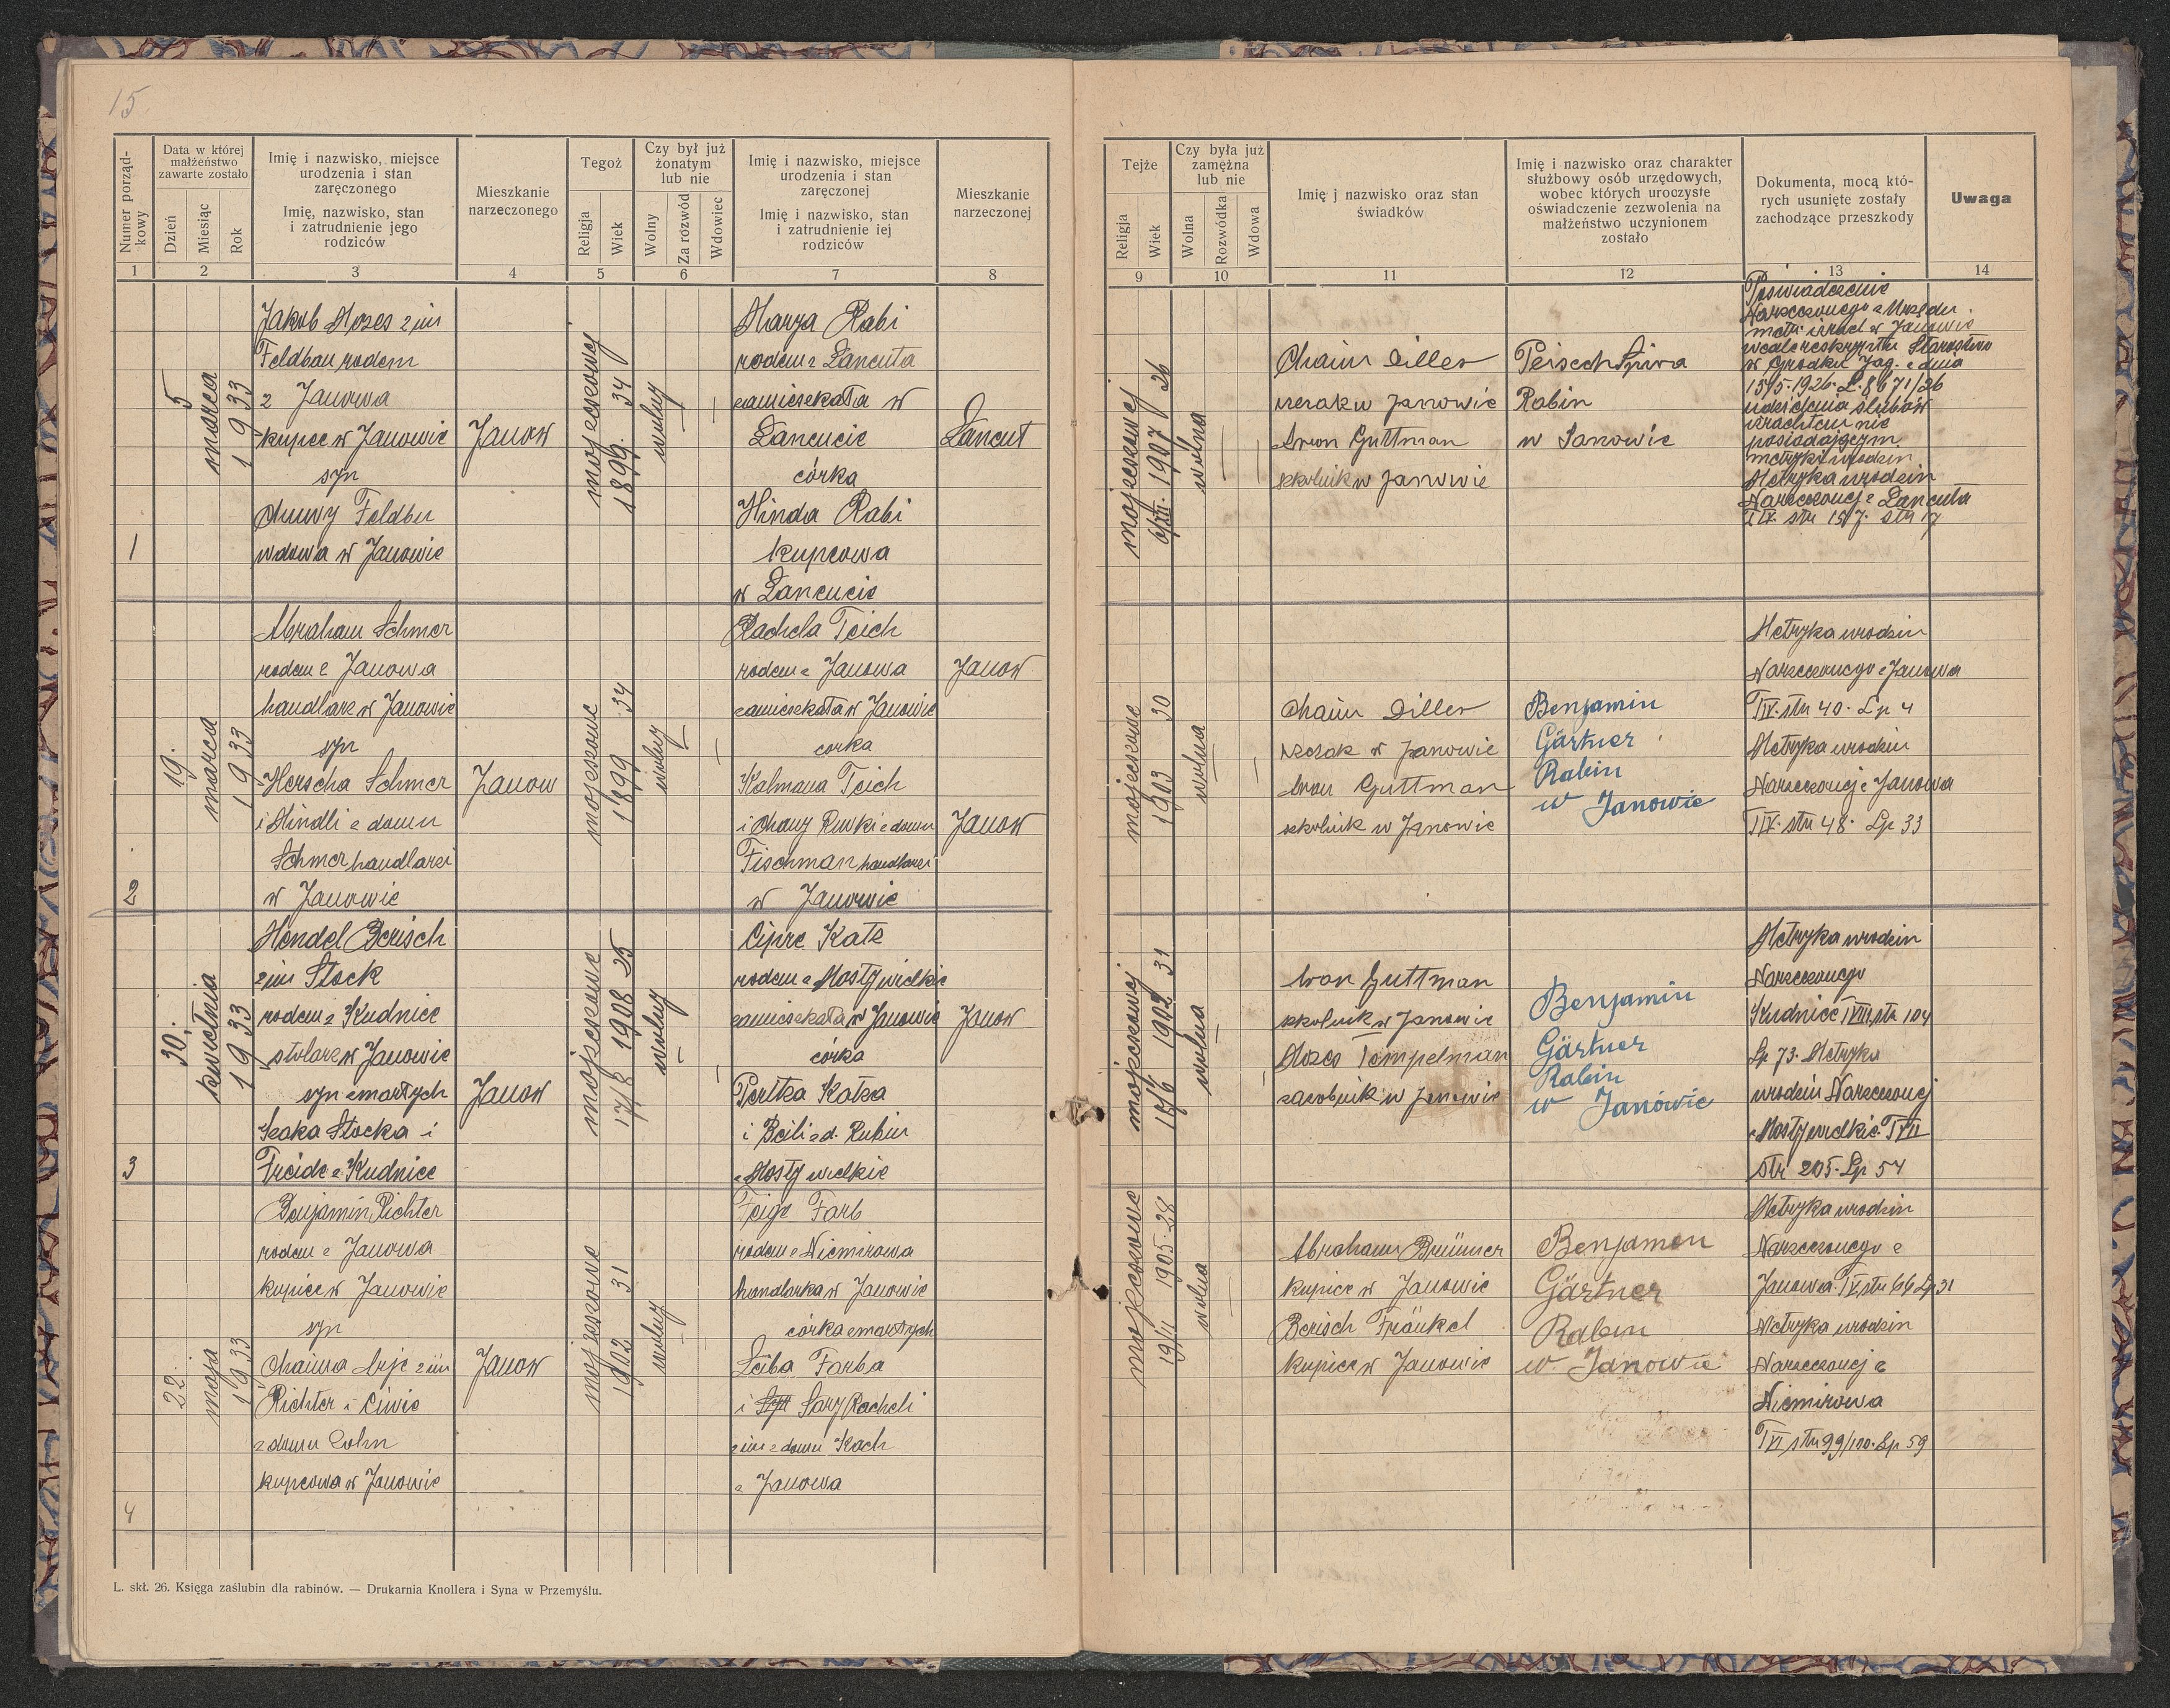 15.
Numer porząd-
kowy
Data w której
małżeństwo
zawarte zostało
Dzień
Miesiąc
Rok
Imię i nazwisko, miejsce
urodzenia i stan
zaręczonego
Imię, nazwisko, stan
i zatrudnienie jego
rodziców
Mieszkanie
narzeczonego
Tegoż
Religja
Wiek
Czy był już
żonatym
lub nie
Wolny
Za rozwód
Wdowiec
Imię i nazwisko, miejsce
urodzenia i stan
zaręczonej
Imię i nazwisko, stan
i zatrudnienie iej
rodziców
Mieszkanie
narzeczonej
1
2
3
4
5
6
7
8
1
5
marca
1933
Jakob Mozes 2 im
Feldbau rodem
z Janowa
kupiec w Janowie
syn
Feldbu
wdowa w Janowie
Janow
mojżeszowej
1899. 34
wolny
Marya Rabi
rodem z Łancuta
zamieszkała w
Łancucie
córka
Hinda Rabi
kupcowa
w Łancucie
Łancut
2
19.
marca
1933
Abraham Schmer
rodem z Janowa
handlarz w Janowie
syn
Herscha Schmer
i Hindli z domu
Schmer handlarzi
w Janowie
Janow
mojżeszowe
1899 34
wolny
Rachela Teich
rodem z Janowa
zamieszkała w Janowie
corka
Kalmana Teich
i Chany Rywki z domu
Fischman handlarzi
w Janowie
Janow
Janow
3
30.
kwietnia
1933
Hendel Berisch
2 im Stock
rodem z Rudniec
stolarz w Janowie
syn zmartych
Izaka Stocka i
Freide z Rudniec
Janow
mojżeszowe
17/8 1908 25
wolny
Cipre Katz
rodem z Mosty wielkie
zamieszkała w Janowie
córka
Pertka Katza
i Beili z d. Rubin
z Mosty wielkie
Janow
4
22.
maja
1933
Benjamin Richter
rodem z Janowa
kupiec w Janowie
syn
Chaima Arje 2 im
Richter i Ciwie
z domu Cohn
kupcowa w Janowie
Janow
mojżeszowe
1902 31
wolny
Feige Farb
rodem z Niemirowa
handlarka w Janowie
córka zmartych
Leiba Farba
i Sary Racheli
2 im z domu Kach
z Janowa
L. skł. 26. Księga zaślubin dla rabinów. — Drukarnia Knollera i Syna w Przemyślu.
Tejże
Religja
Wiek
Czy była już
zamężna
lub nie
Wolna
Rozwódka
Wdowa
Imię j nazwisko oraz stan
świadków
Imię i nazwisko oraz charakter
służbowy osób urzędowych,
wobec których uroczyste
oświadczenie zezwolenia na
małżeństwo uczynionem
zostało
Dokumenta, mocą któ-
rych usunięte zostały
zachodzące przeszkody
Uwaga
9
10
11
12
13
14
mojżeszowej
6/XII. 1907 26
wolna
Chaim Diller
rzezak w Janowie
Aron Guttman
szkolnik w Janowie
Peisech Spira
Rabin
w Janowie
Poświadczenie
Narzeczonego z Urzędu
metr. izrael w Janowie
wedle reskryptu Starostwo
w Grodku Jag. z dnia
15/5. 1926. L. 8671/26
udzielenia ślubów
nie
posiadającym
metryki urodzin
Metryka urodzin
Narzeczonej z Łancuta
mojżeszowe
1903 30
wolna
Chaim Diller
rzezak w Janowie
Aron Guttman
szkolnik w Janowie
Benjamin
Gärtner
Rabin
w Janowie
Metryka urodzin
Narzeczonego z Janowa
TIV. str 40. Lp 4
Metryka urodzin
Narzeczonej z Janowa
TIV. str 48. Lp 33
mojżeszowej
15/6 1902 31
wolna
Aron Guttman
szkolnik w Janowie
Mozes Tempelman
zarobnik w Janowie
Benjamin
Gärtner
Rabin
w Janówie
Metryka urodzin
Narzeczonego
Rudniec TVIII, str. 104
Lp 73. Metryka
urodzin Narzeczonej
z Mosty wielkie TVII
str 205. Lp 54
mojżeszowe
19/11 1905. 28
wolna
Abraham Brünner
kupiec w Janowie
Berisch Fränkel
kupiec w Janowie
Benjamen
Gärtner
Rabin
w Janowie
Metryka urodzin
Narzeczonego z
Janowa. TV, str 66 Lp 31
Metryka urodzin
Narzeczonej z
Niemirowa
TVI str 99/100. Lp 59